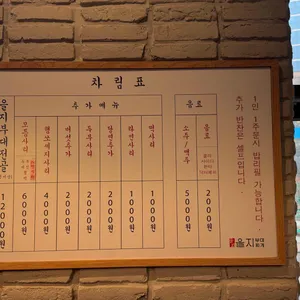 차림표
추가메뉴
음료
을지부대전골
12000원
모듬사리
6000원
햄쏘세지사리
4000원
버섯추가
2000원
두부사리
2000원
당면추가
2000원
라면사리
1000원
떡사리
1000원
소주/맥주
5000원
음료
2000원
1인 1주문시 밥리필 가능합니다.
추가 반찬은 셀프입니다.
을지 부대찌개